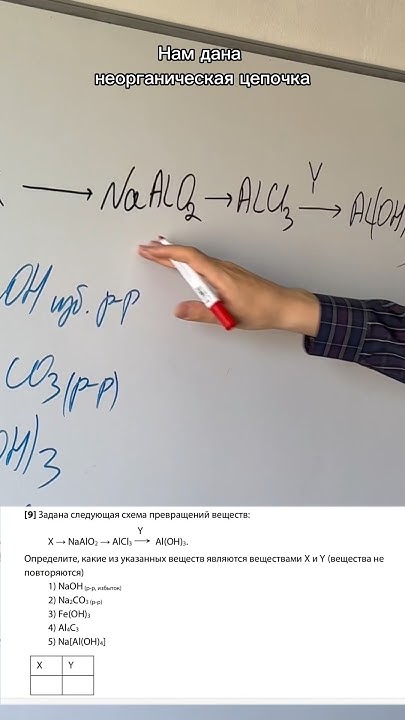 Нам дана
неорганическая цепочка
→ NaAlO₂ → AlCl₃ →(Y) Al(OH)
OH изб. р-р
CO₃ (р-р)
OH)₃
[9] Задана следующая схема превращений веществ:
Y
X → NaAlO₂ → AlCl₃ → Al(OH)₃.
Определите, какие из указанных веществ являются веществами X и Y (вещества не
повторяются)
1) NaOH (р-р, избыток)
2) Na₂CO₃ (р-р)
3) Fe(OH)₃
4) Al₄C₃
5) Na[Al(OH)₄]
X Y